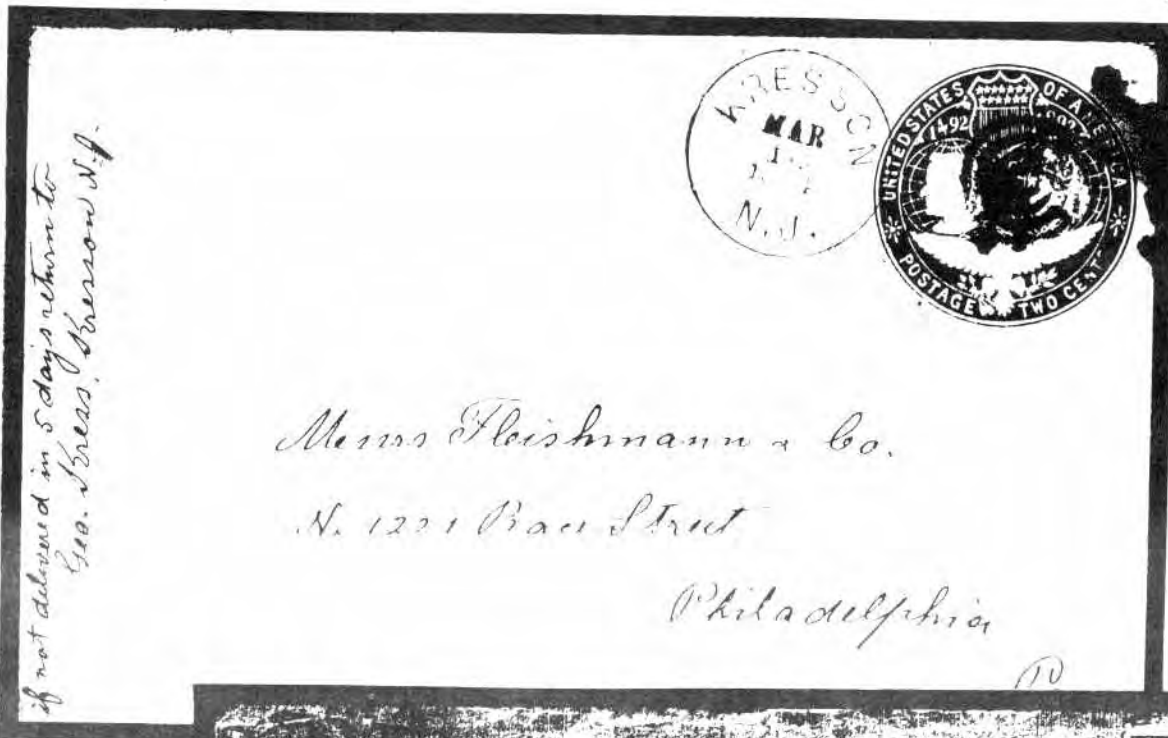 if not delivered in 5 days return to
Geo. Kress, Kresson N.J.
KRESSON
MAR
N.J.
UNITED STATES OF AMERICA
1492
POSTAGE TWO CENTS
Messrs Fleishmann & Co.
N. 1221 Race Street
Philadelphia